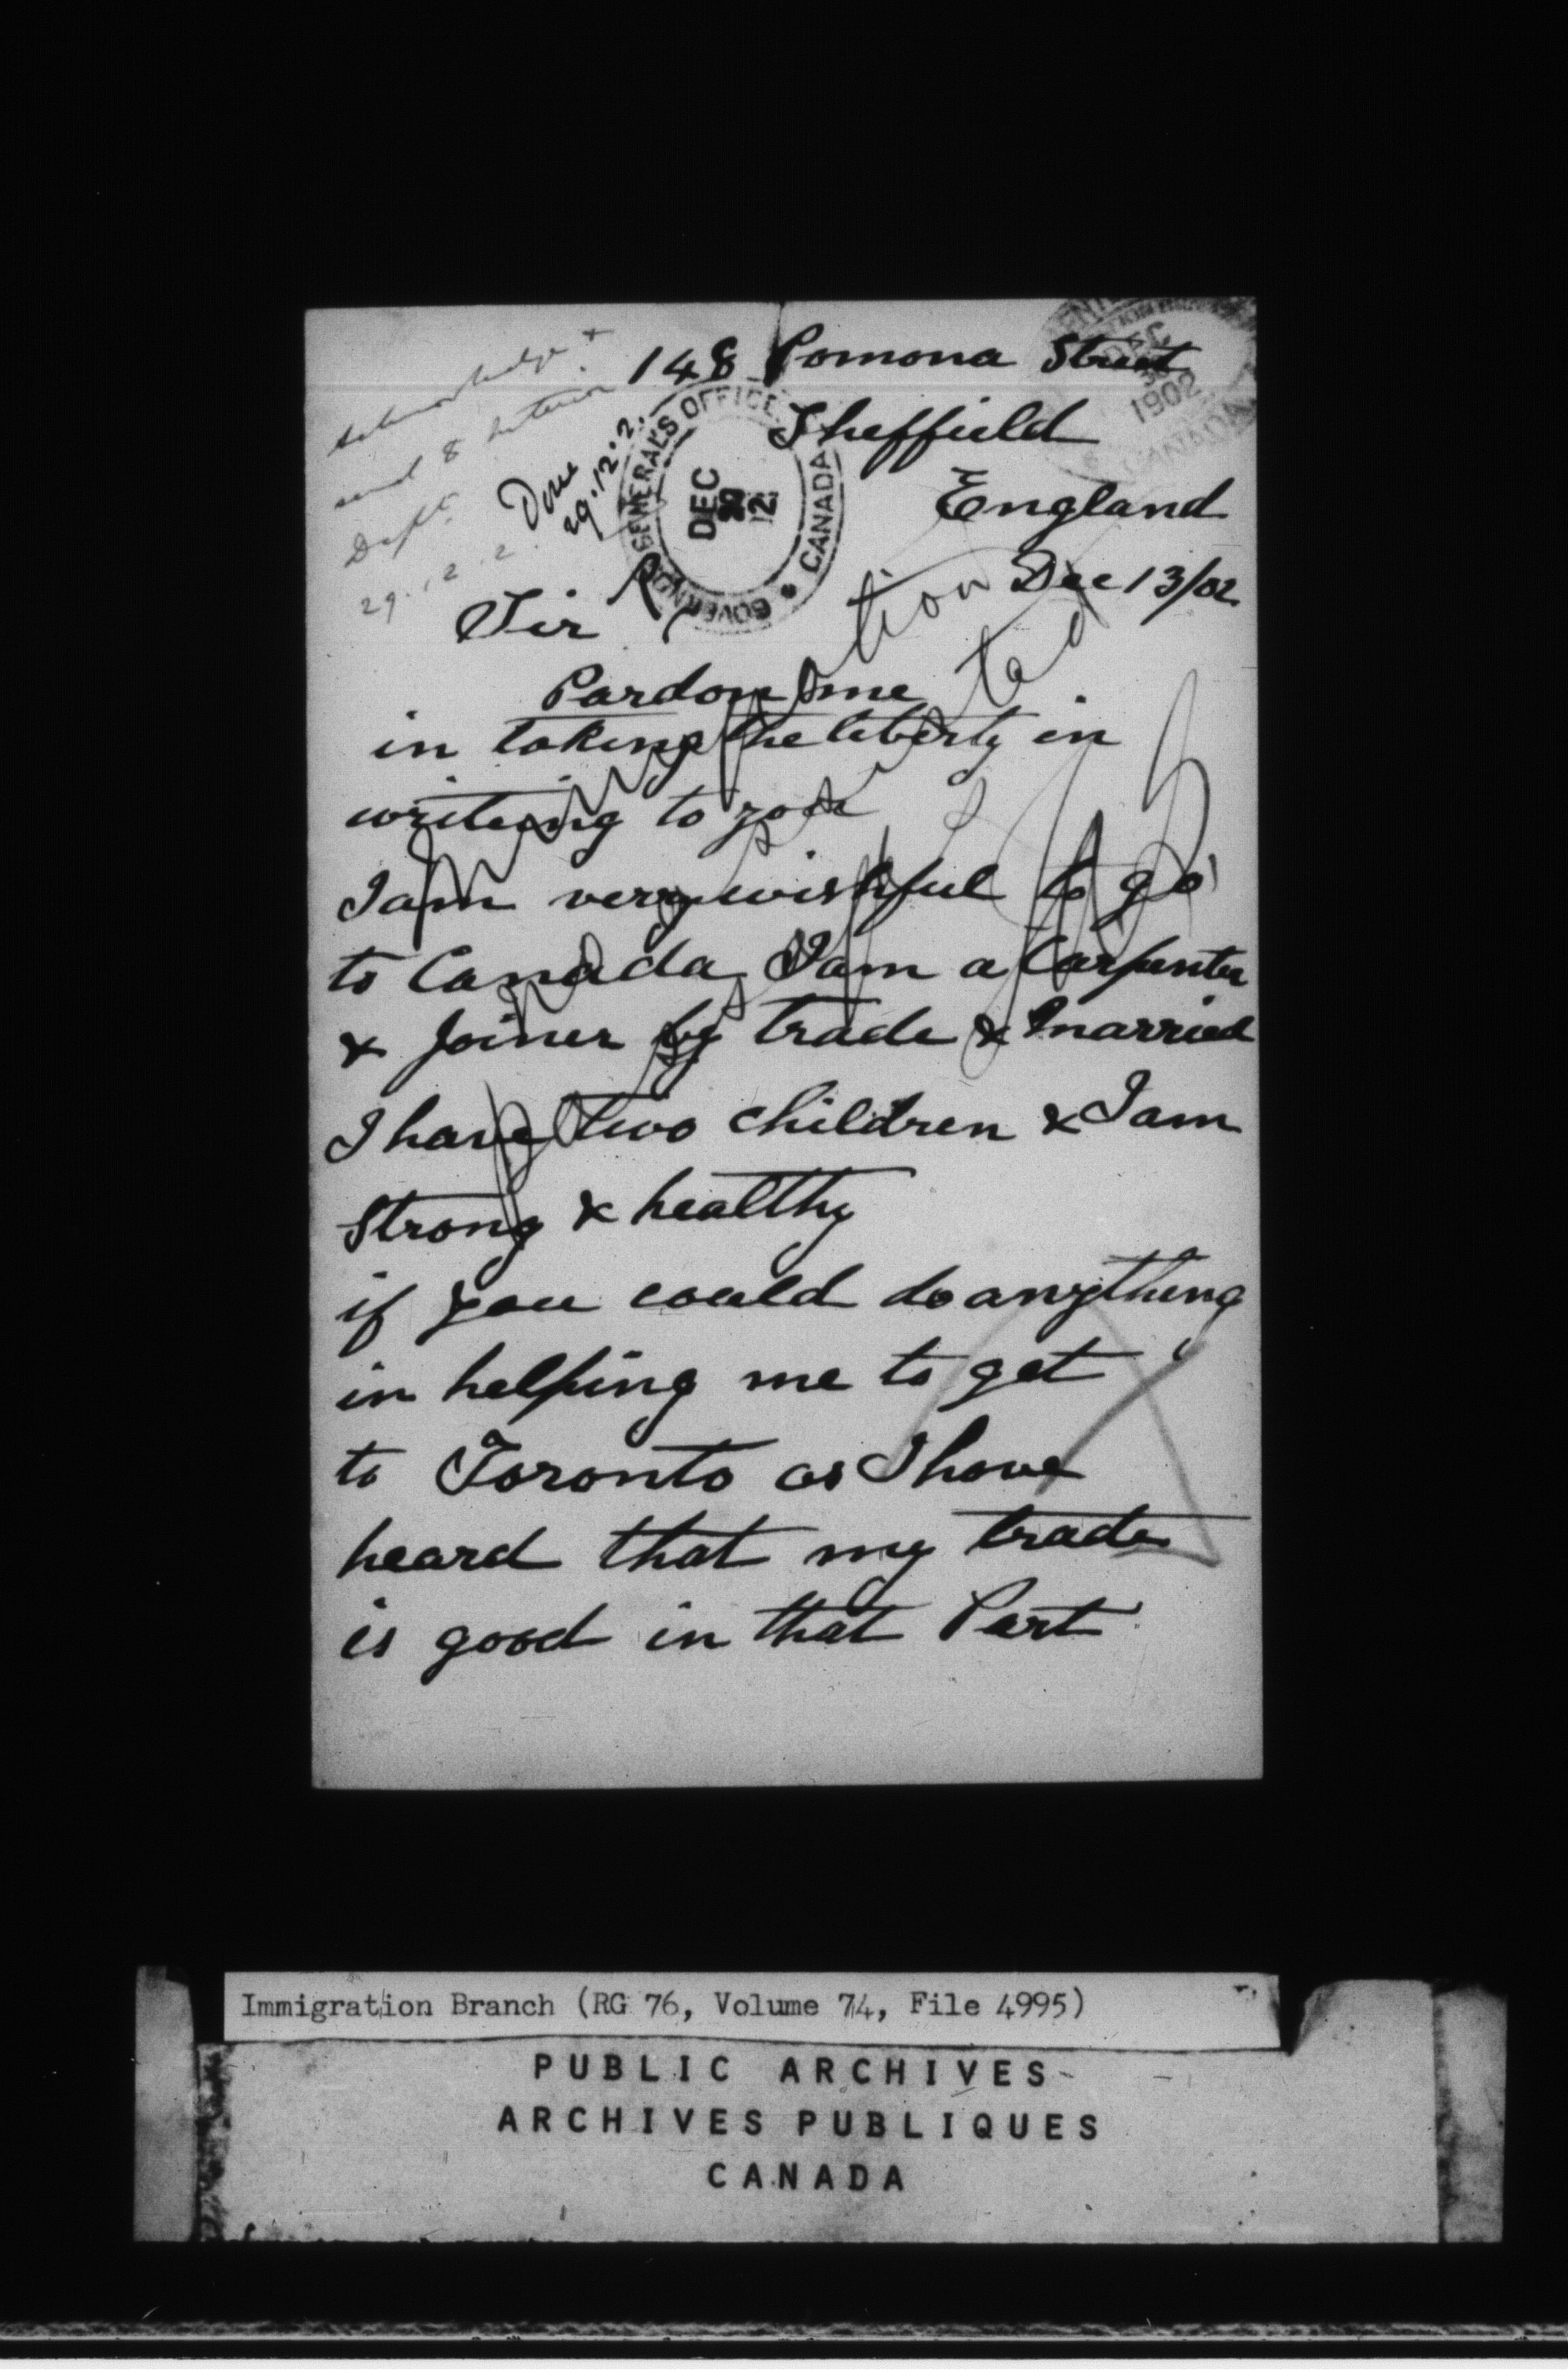 148 Pomona Street
Sheffield
England
Dec 13/02
and 8
Dept.
29.12.2.
Done
29.12.2.
GOVERNOR GENERAL'S OFFICE
DEC
29
12
CANADA
DEC
1902
CANADA
Sir
Pardon me
in taking the liberty in
writing to you
I am very wishful to go
to Canada, I am a Carpenter
& Joiner by trade & married
I have two children & I am
Strong & healthy
if you could do anything
in helping me to get
to Toronto as I have
heard that my trade
is good in that Part
Immigration
Immigration Branch (RG 76, Volume 74, File 4995)
PUBLIC ARCHIVES
ARCHIVES PUBLIQUES
CANADA